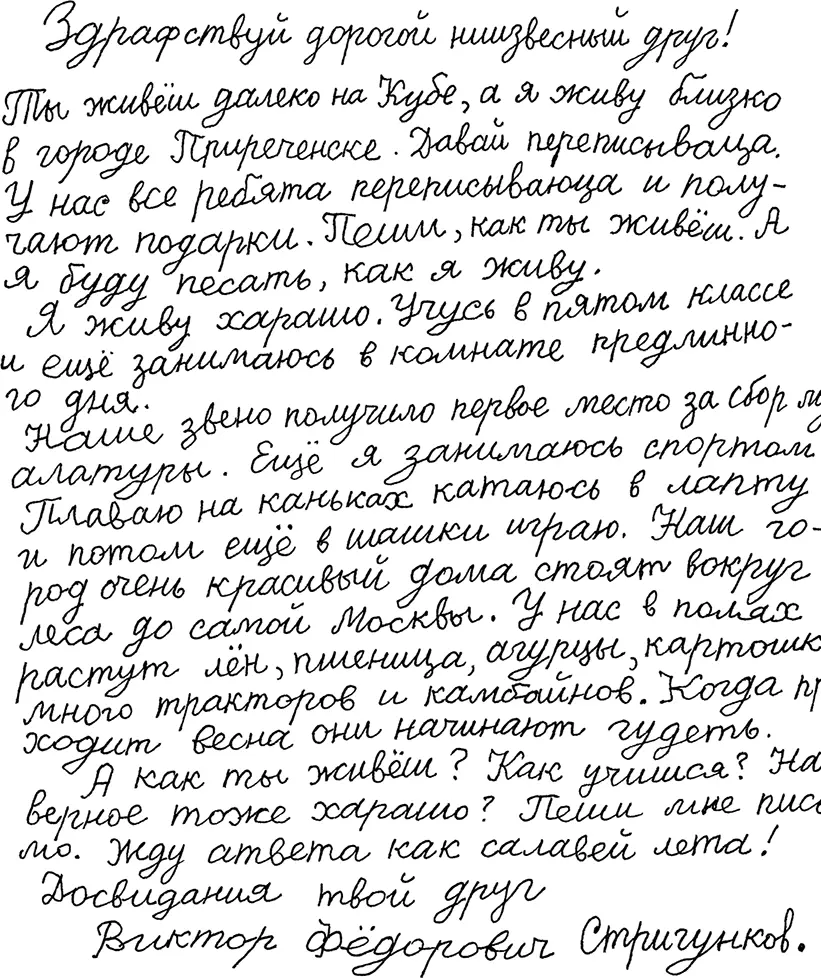 Здрафствуй дорогой ниизвесный друг!
Ты живёш далеко на Кубе, а я живу близко
в городе Приреченске. Давай переписываца.
У нас все ребята переписываюца и полу-
чают подарки. Пеши, как ты живёш. А
я буду песать, как я живу.
Я живу харашо. Учусь в пятом классе
и ещё занимаюсь в комнате предлинно-
го дня.
Наше звено получило первое место за сбор му
алатуры. Ещё я занимаюсь спортом
Плаваю на каньках катаюсь в лапту
и потом ещё в шашки играю. Наш го-
род очень красивый дома стоят вокруг
леса до самой Москвы. У нас в полях
растут лён, пшеница, агурцы, картошк
много тракторов и камбайнов. Когда пр
ходит весна они начинают гудеть.
А как ты живёш? Как учишся? На
верное тоже харашо? Пеши мне пис
мо. Жду атвета как салавей лета!
Досвидания твой друг
Виктор Фёдорович Стригунков.